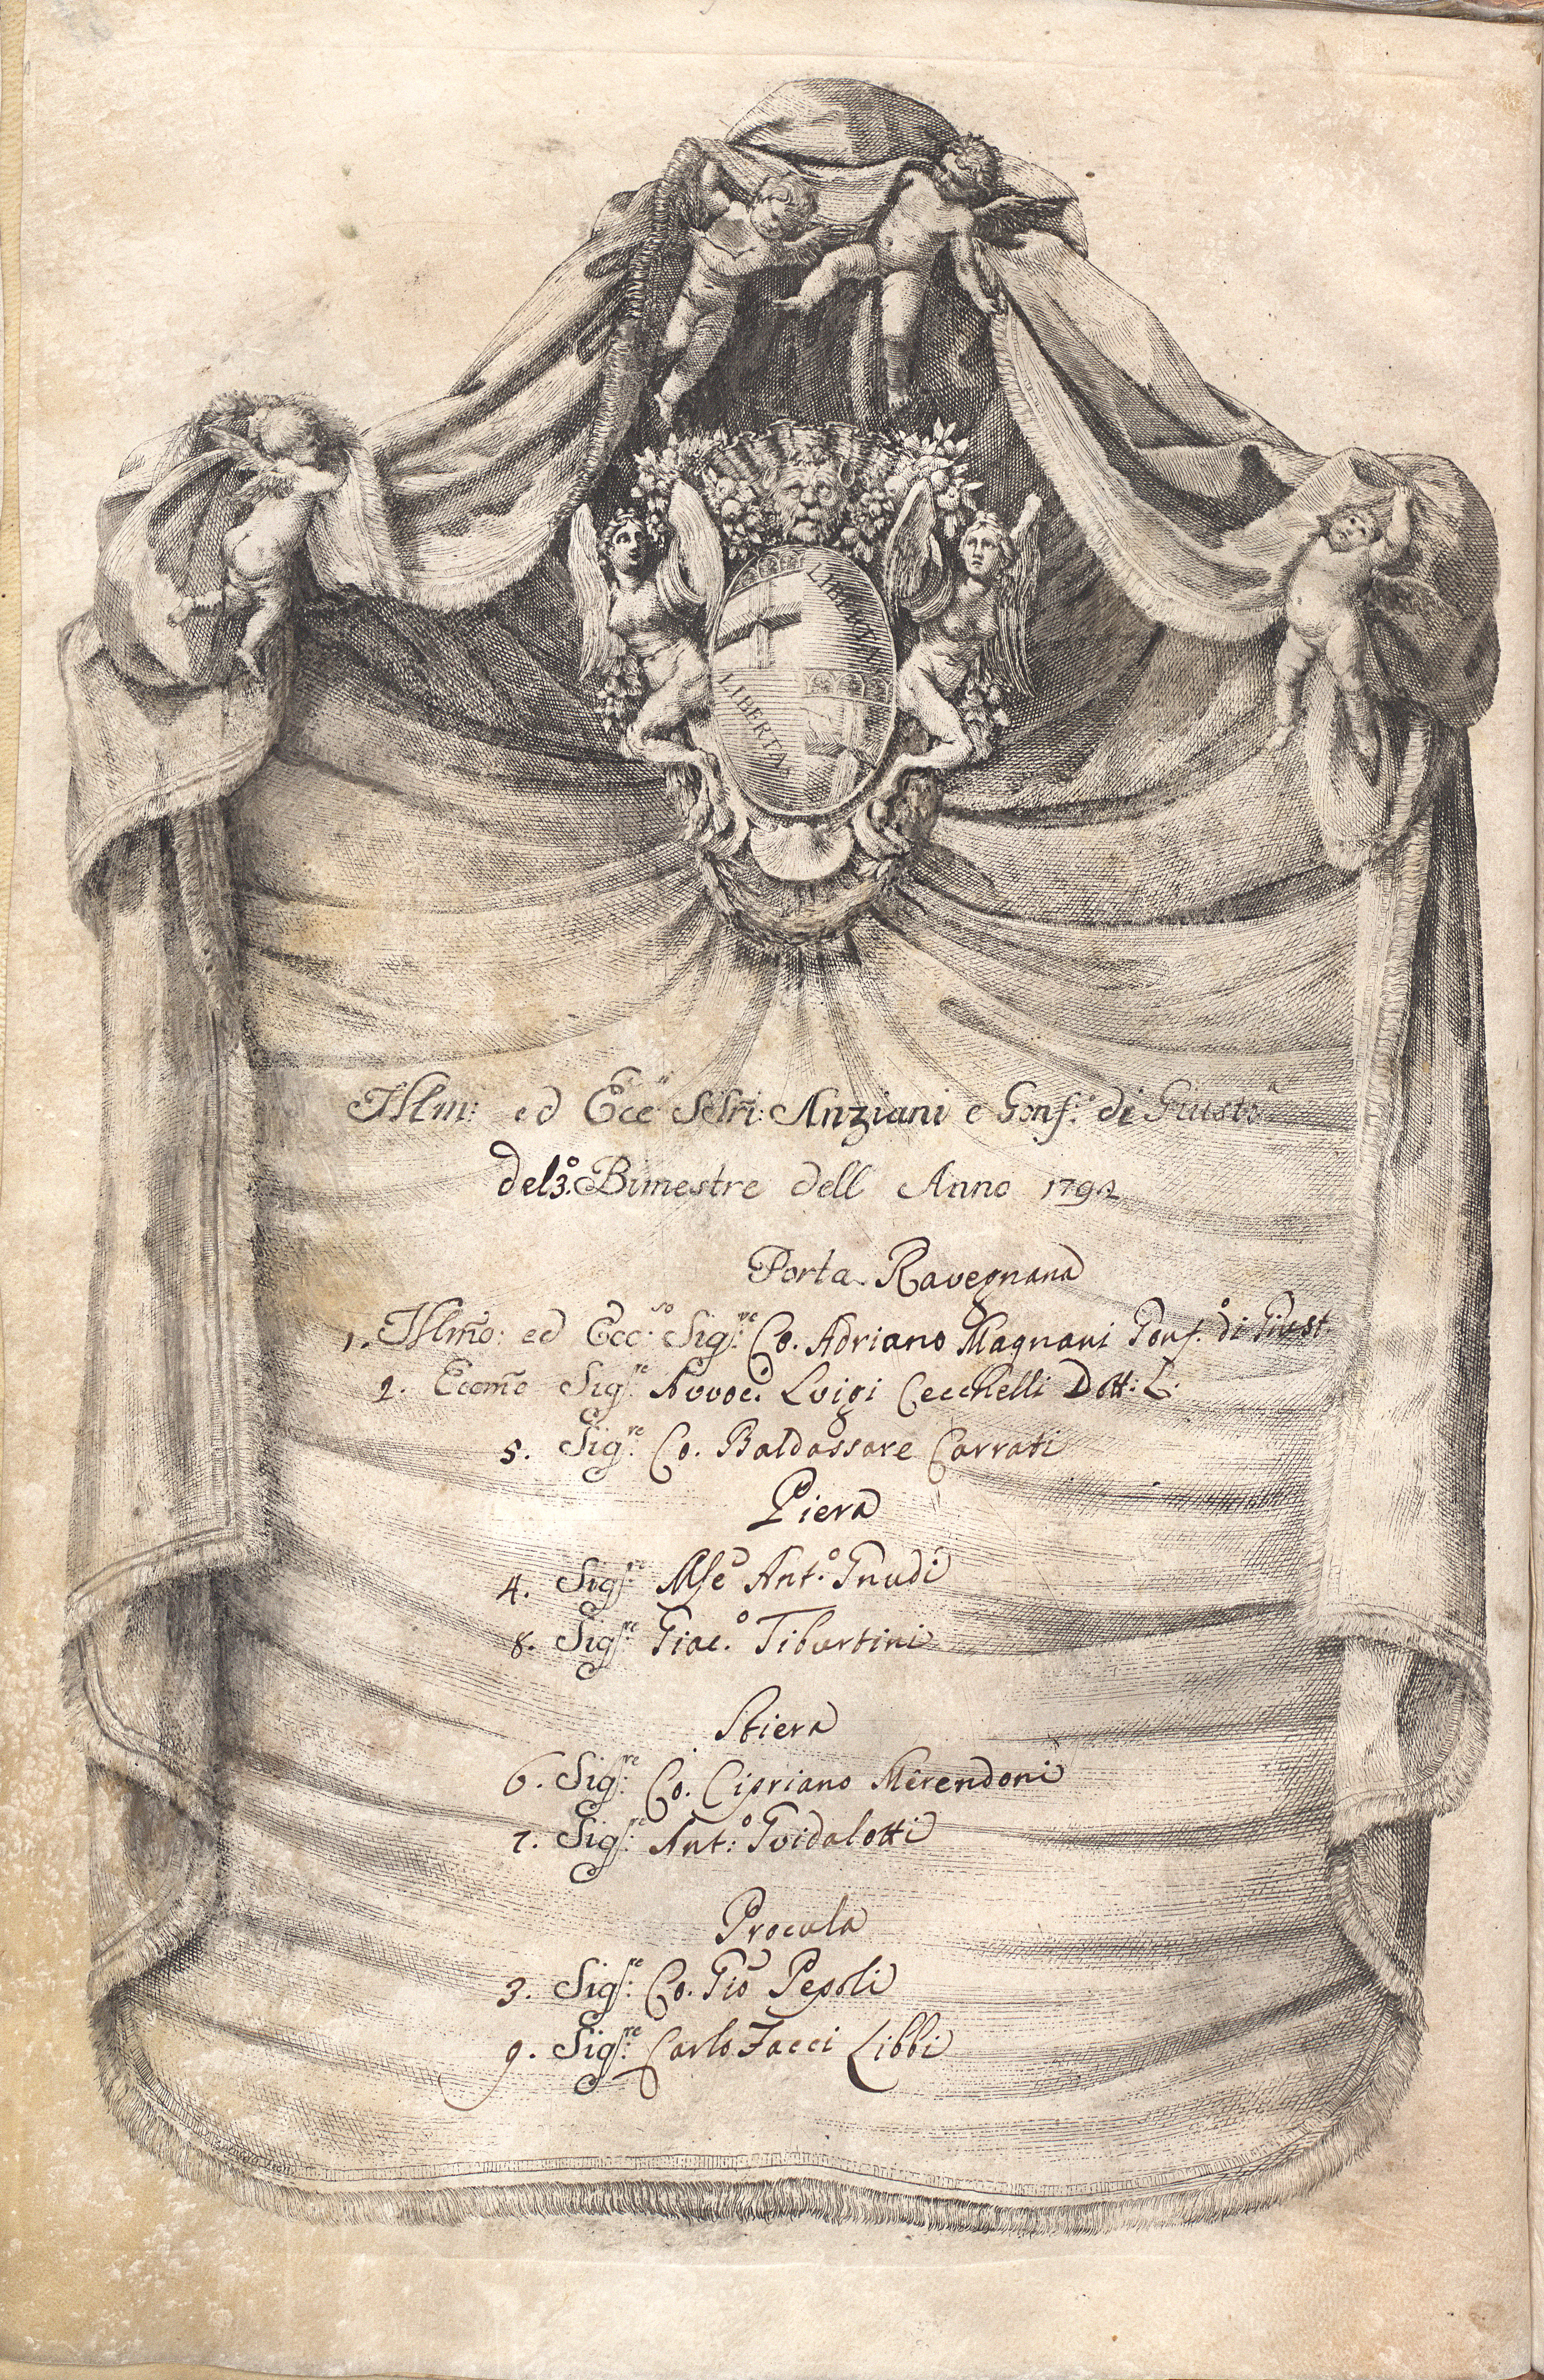 LIBERTAS
LIBERTAS
Illm: ed Ecc.ⁱ SSri: Anziani e Gonf.ᵉ di Giustᵃ
del 3.º Bimestre dell Anno 1792
Porta Ravegnana
1. Illm̃o: ed Ecc.ˢᵒ Sig.ʳᵉ Co. Adriano Magnani Gonf.º di Giust.
2. Eccm̃o Sig.ʳᵉ Avvoc.º Luigi Cecchelli Dott: L.
5. Sig.ʳᵉ Co. Baldassare Carrati
Piera
4. Sig.ʳᵉ Mse Ant.º Gnudi
8. Sig.ʳᵉ Giac.º Tiburtini
Stiera
6. Sig.ʳᵉ Co. Cipriano Merendoni
7. Sig.ʳᵉ Ant.º Guidalotti
Procula
3. Sig.ʳᵉ Co. Gio Pepoli
9. Sig.ʳᵉ Carlo Facci Libbi